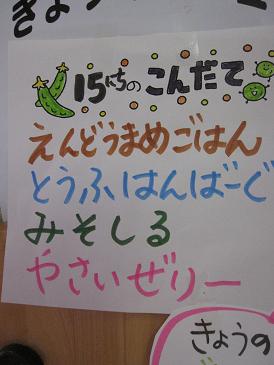 きょう
15にちのこんだて
えんどうまめごはん
とうふはんばーぐ
みそしる
やさいぜりー
きょうの